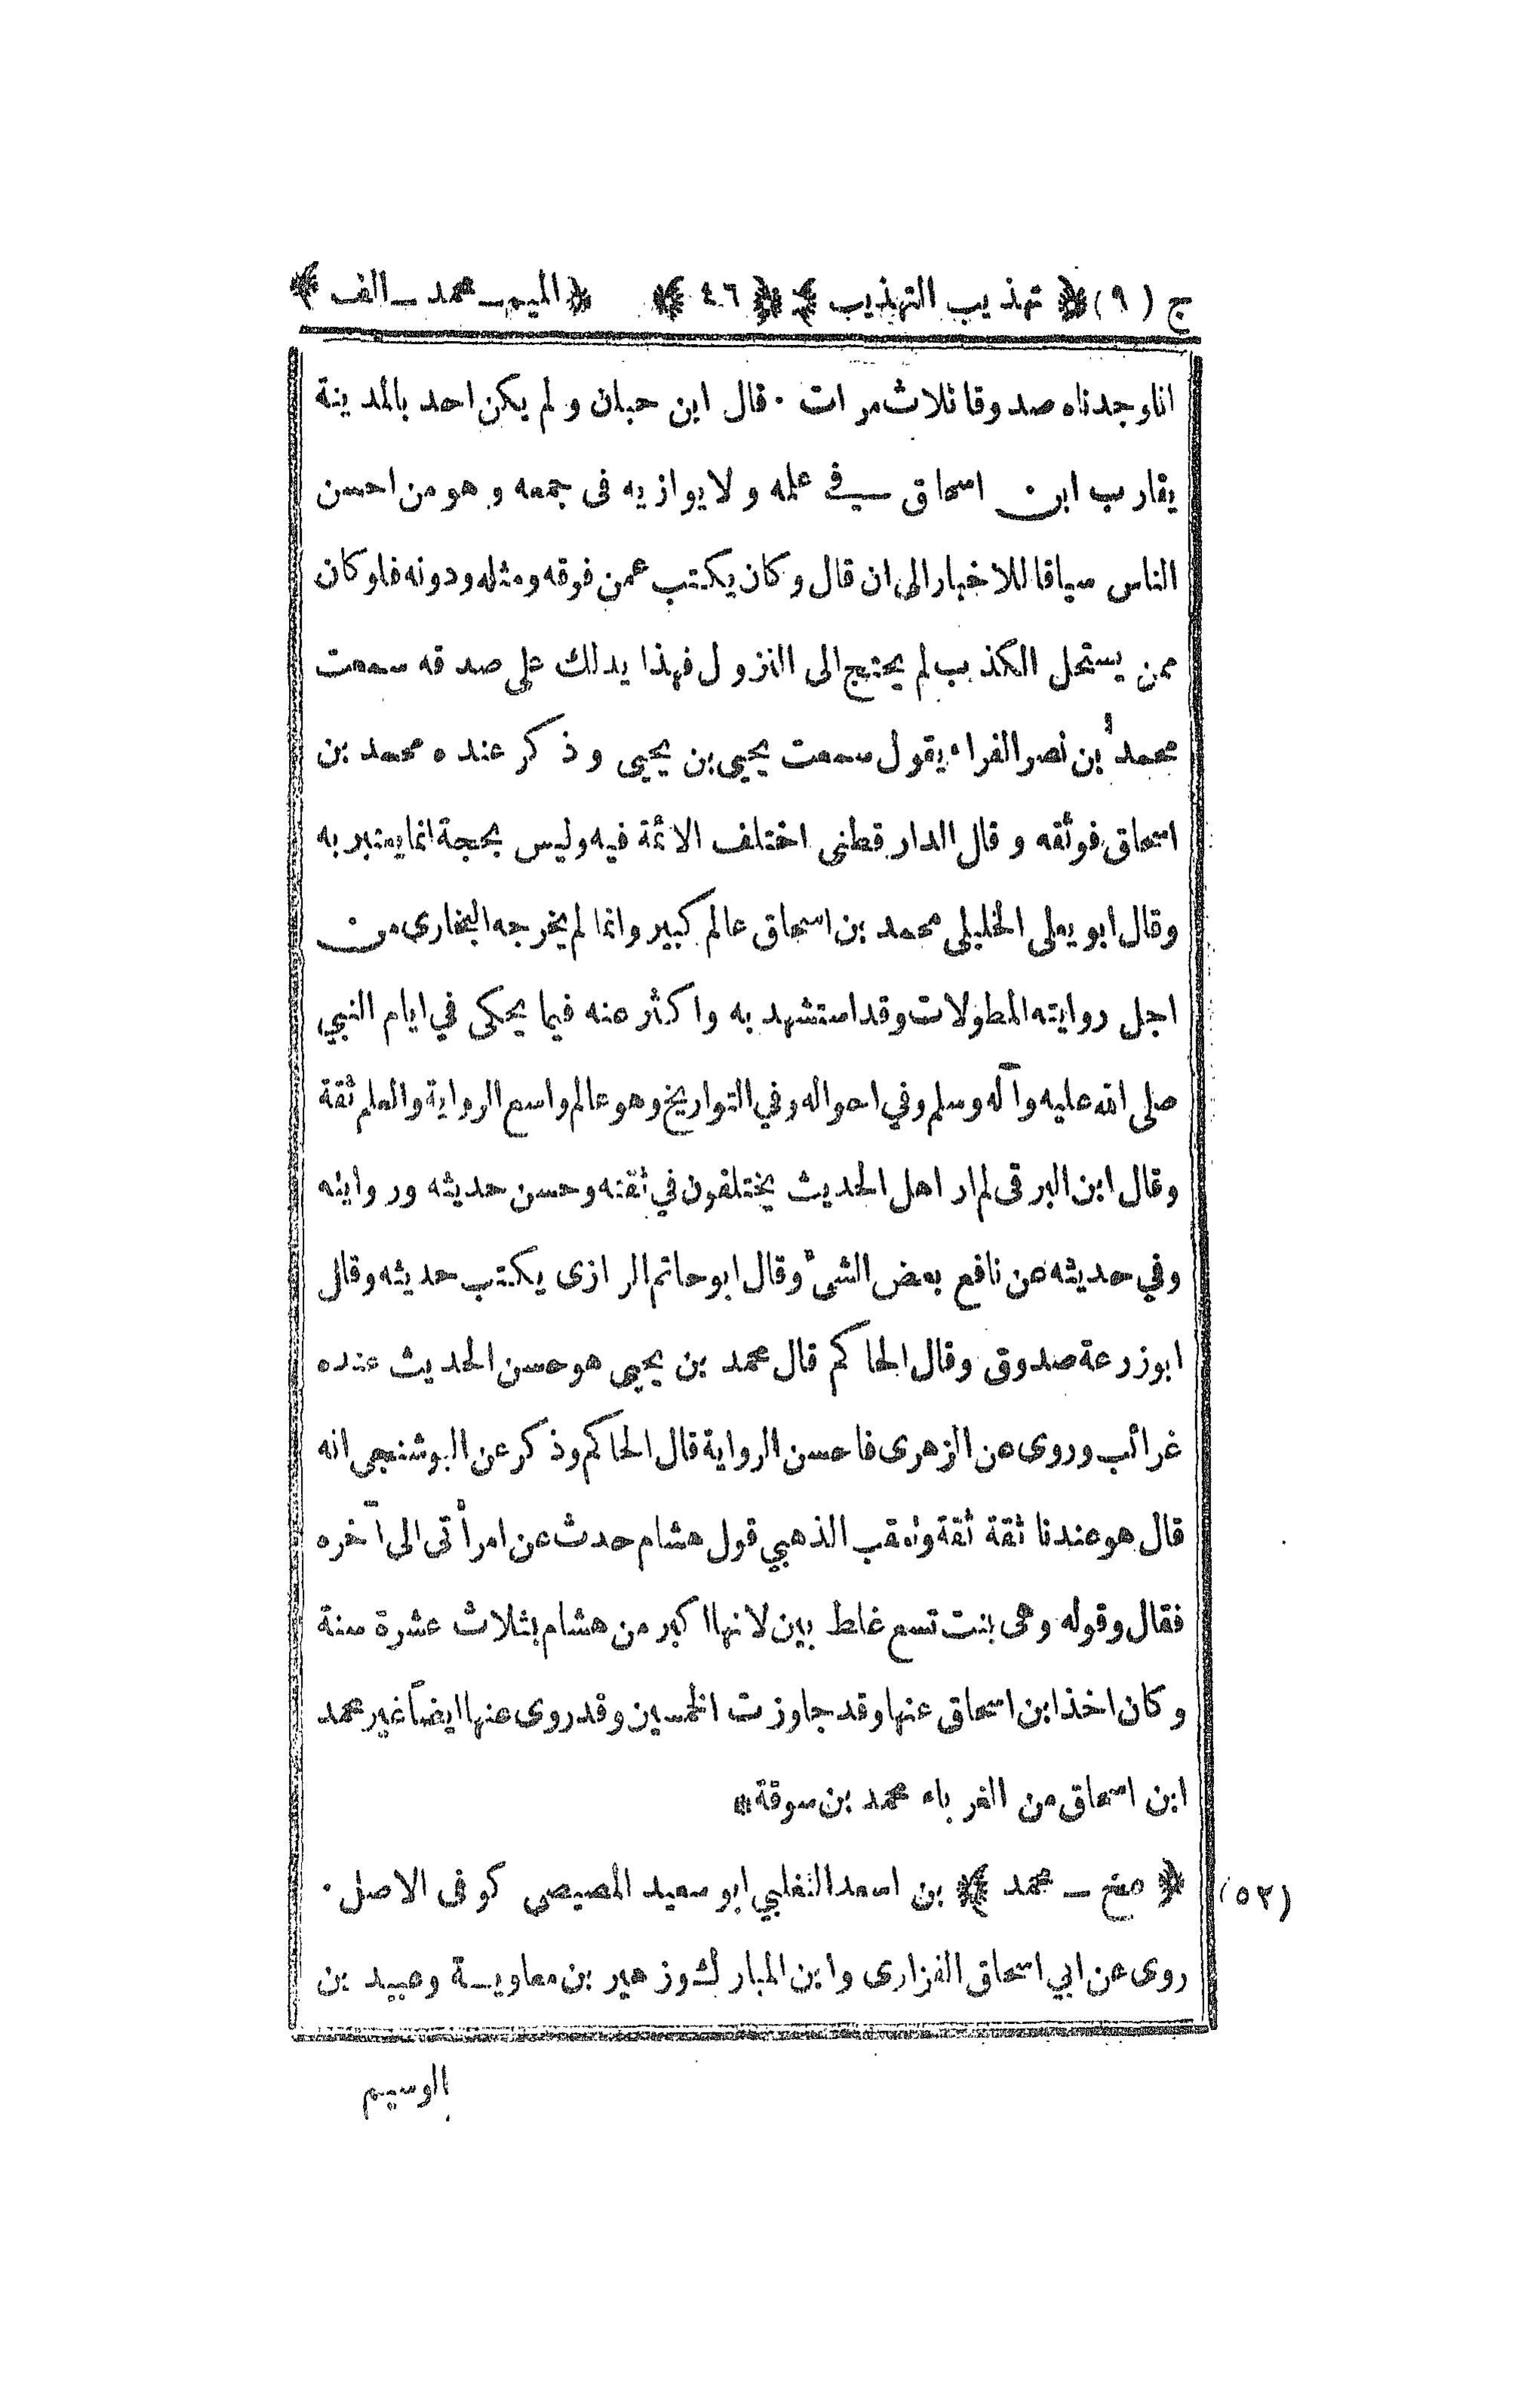 ج (٩) ﴿ تهذيب التهذيب ﴾ ﴿ ٤٦ ﴾ ﴿ الميم ـ محمد ـ الف ﴾
اناوجدناه صدوقا ثلاث مرات · قال ابن حبان ولم يكن احد بالمدينة
يقارب ابن اسحاق في علمه ولا يوازيه فى جمعه وهو من احسن
الناس سياقا للاخبار الى ان قال وكان يكتب عمن فوقه ومثله ودونه فلو كان
ممن يستحل الكذب لم يحتج الى النزول فهذا يدلك على صدقه سمعت
محمد بن نصر الفراء يقول سمعت يحيى بن يحيى وذكر عنده محمد بن
اسحاق فوثقه وقال الدارقطنى اختلف الائمة فيه وليس بحجة انما يعتبر به
وقال ابو يعلى الخليلى محمد بن اسحاق عالم كبير وانما لم يخرجه البخارى من
اجل روايته المطولات وقد استشهد به واكثر عنه فيما يحكى في ايام النبي
صلى الله عليه وآله وسلم وفي احواله وفي التواريخ وهو عالم واسع الرواية والعلم ثقة
وقال ابن البرقى لم ار اهل الحديث يختلفون في ثقته وحسن حديثه وروايته
وفي حديثه عن نافع بعض الشئ وقال ابو حاتم الرازى يكتب حديثه وقال
ابوزرعة صدوق وقال الحاكم قال محمد بن يحيى هو حسن الحديث عنده
غرائب وروى عن الزهرى فاحسن الرواية قال الحاكم وذكر عن البوشنجى انه
قال هو عندنا ثقة ثقة وتعقب الذهبي قول هشام حدث عن امرأتى الى آخره
فقال وقوله وهى بنت تسع غلط بين لانها اكبر من هشام بثلاث عشرة سنة
وكان اخذ ابن اسحاق عنها وقد جاوزت الخمسين وقد روى عنها ايضاً غير محمد
ابن اسحاق من الغرباء محمد بن سوقة *
(٥٢) ﴿ صخ ـ محمد ﴾ بن اسعد التغلبي ابو سعيد المصيصى كوفى الاصل ·
روى عن ابي اسحاق الفزارى وابن المبارك وزهير بن معاوية وعبيد بن
الوسيم